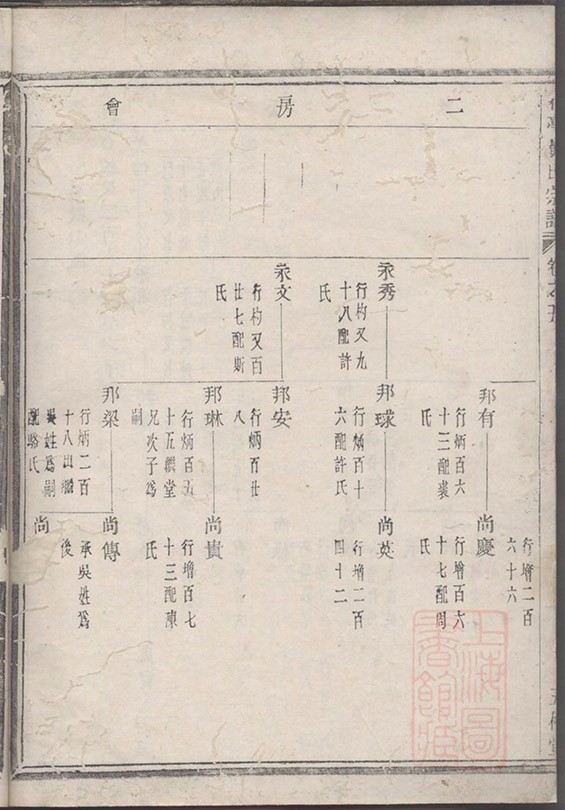 二房會
氏宗譜
卷之
行增二百
六十六
邦有
行炳百六
十三配裘
氏
尚慶
行增百六
十七配周
氏
永秀
行杓又九
十八配許
氏
邦球
行炳百十
六配許氏
尚英
行增二百
四十二
永文
行杓又百
廿七配斯
氏
邦安
行炳百廿
八
邦琳
行炳百五
十五繼堂
兄次子為
嗣
尚貴
行增百七
十三配陳
氏
邦梁
行炳二百
十八出繼
吳姓為嗣
配駱氏
尚傳
承吳姓為
後
尚
上海圖
書館藏